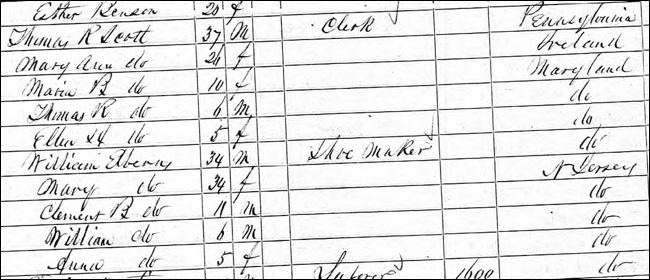 Esther Benson 20 f
Thomas R Scott 37 M Clerk Pennsylvania
Mary Ann do 26 f Ireland
Maria B do 10 f Maryland
Thomas R do 6 M do
Ellen do 5 f do
William 34 M Shoe Maker do
Mary do 34 f N Jersey
Clement B do 11 m do
William do 6 m do
Anna do 5 f do
Laborer 1600 do